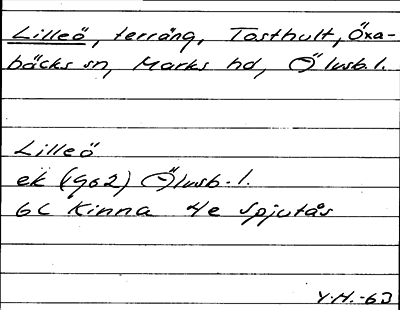 Lilleö, terräng, Tosthult, Öxa-
bäcks sn, Marks hd, Ä lvsb. l.
Lilleö
ek (1962) Älvsb. l.
6C Kinna 4e Spjutås
Y.H.-63